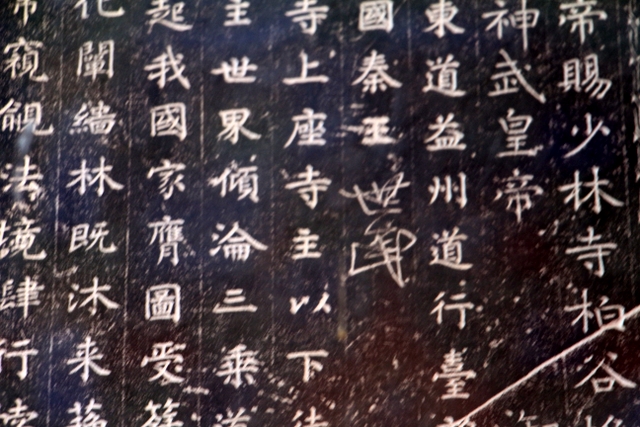 帝賜少林寺柏谷
神武皇帝
東道益州道行臺
國秦王世民
寺上座寺主以下
主世界傾淪三乘
起我國家膺圖受
闡緇林既沐来蘇
窺覦法境肆行